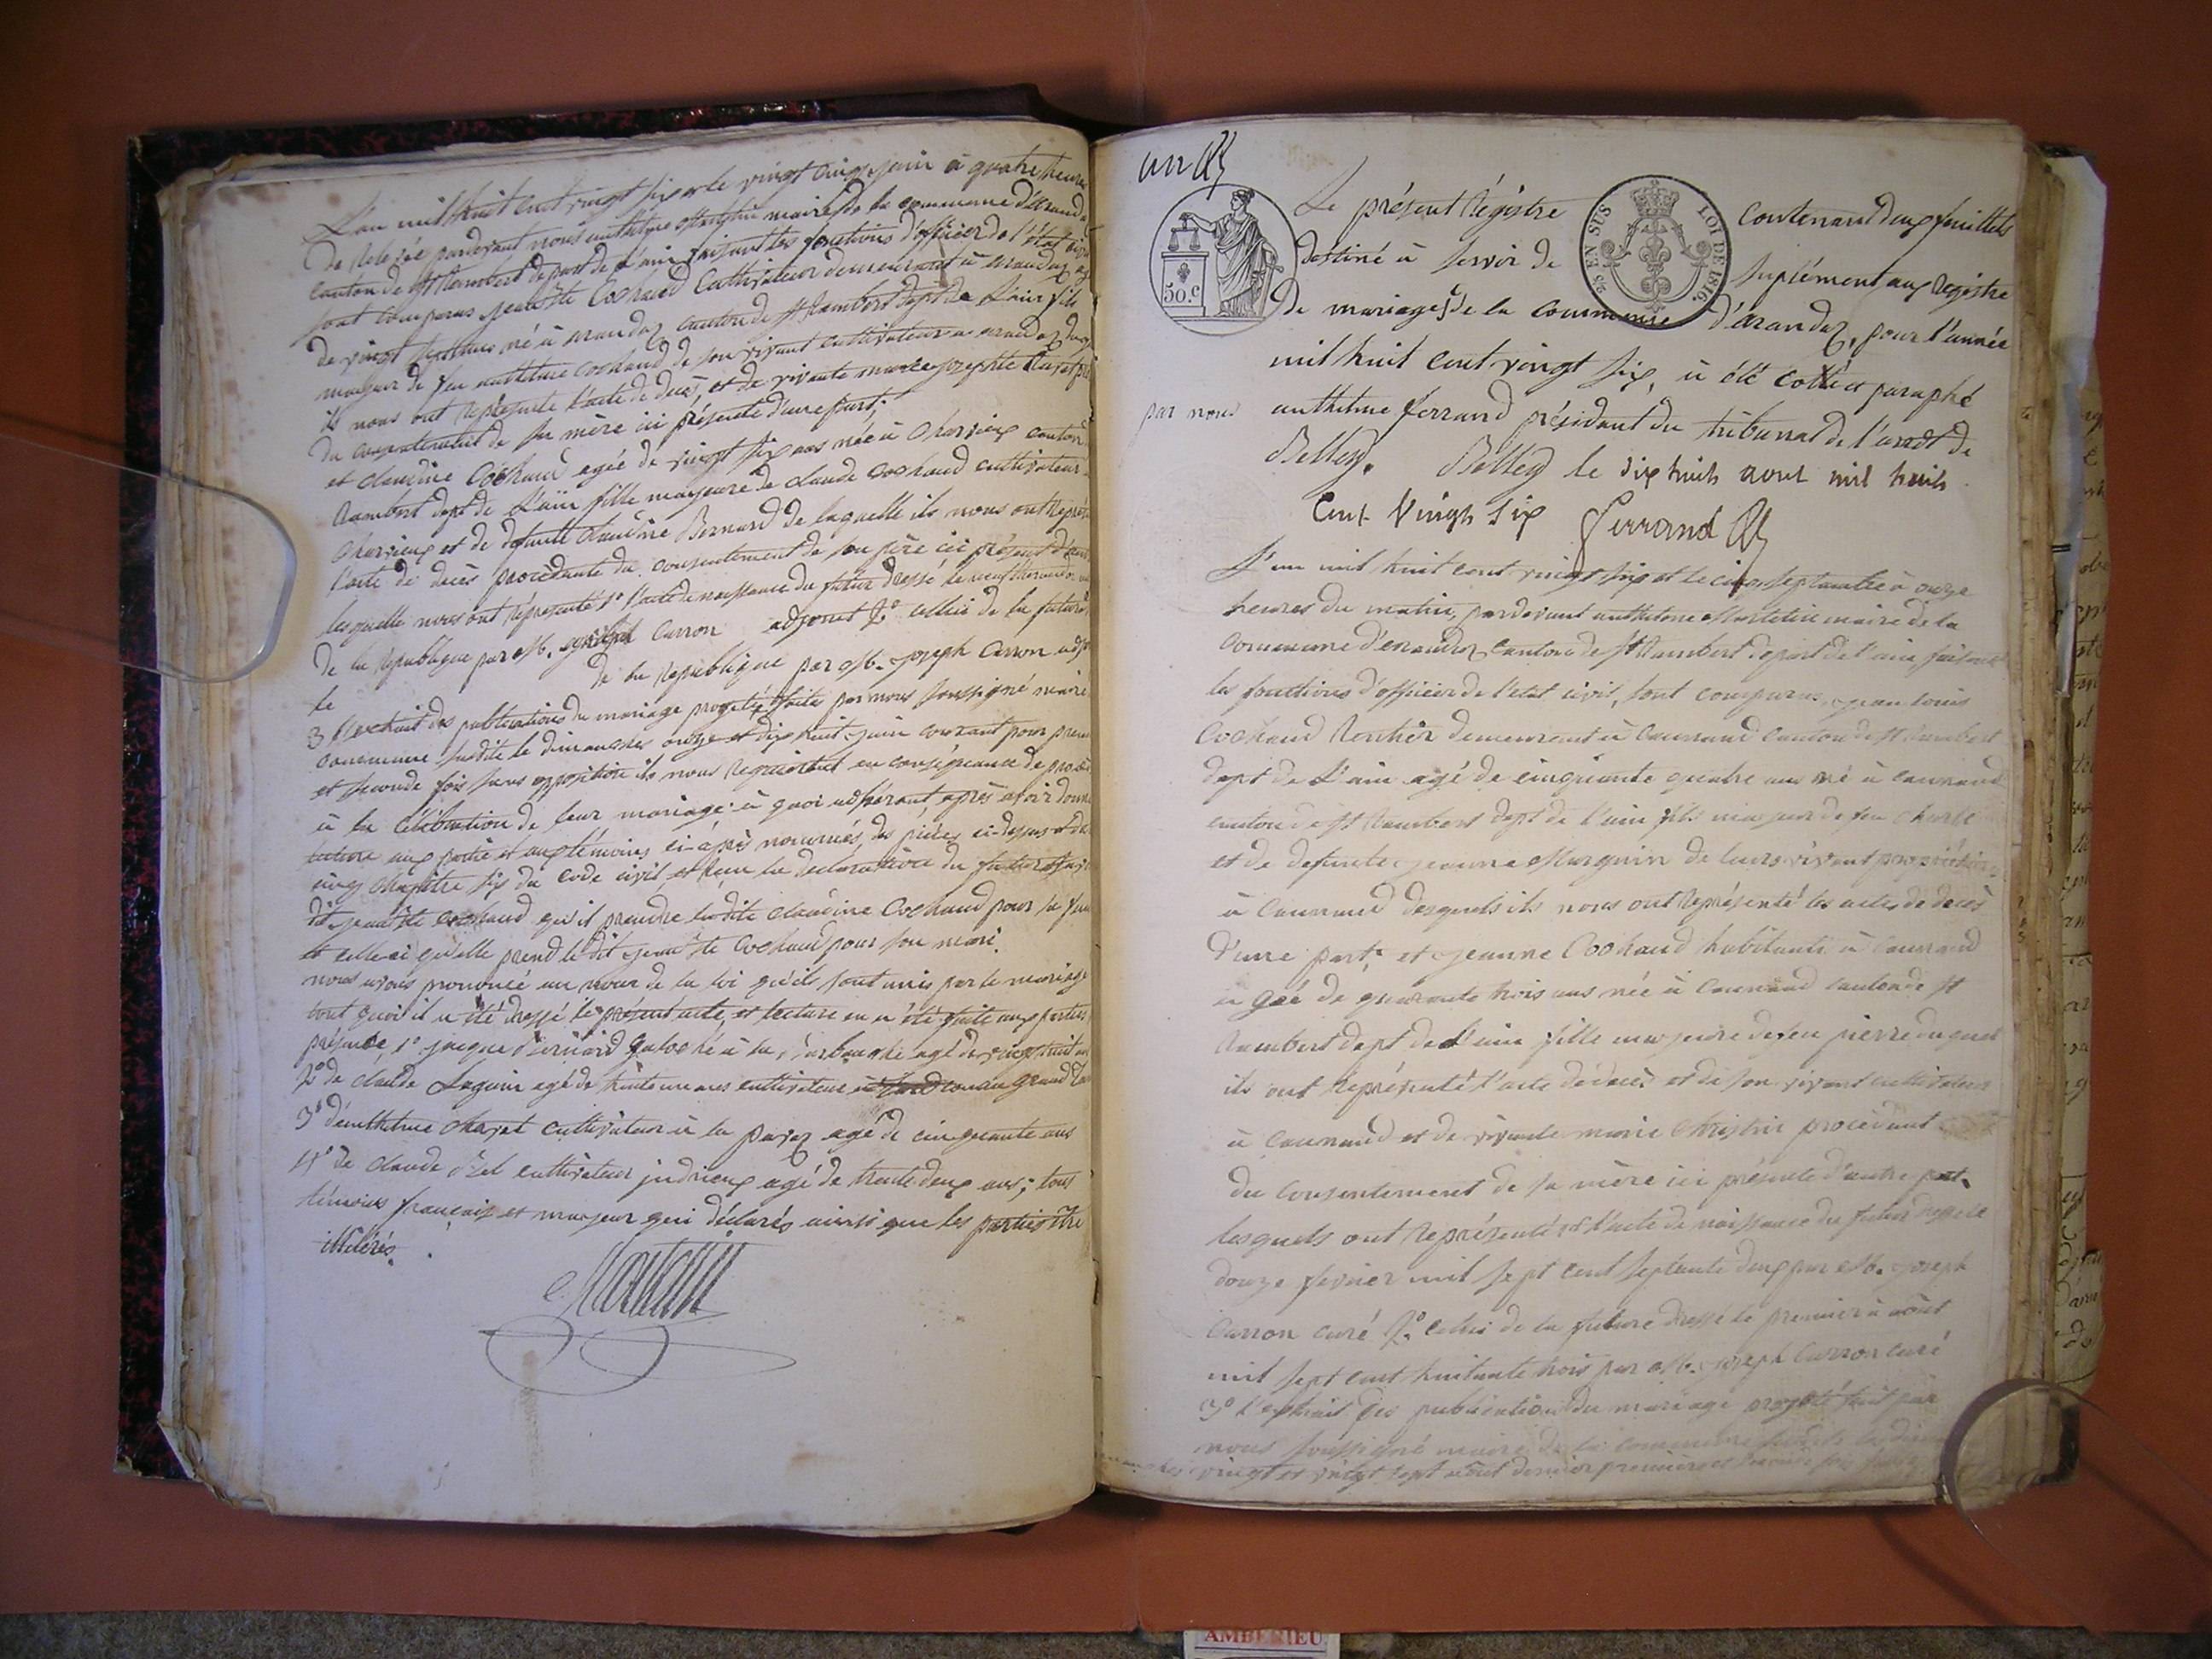 L'an mil huit cent vingt six et le vingt cinq juin à quatre heures
de Relevée pardevant nous anthelme Martelin maire de la commune d'arandas
canton de St Rambert depart de l'ain faisant les fonctions d'officier de l'état civil
sont comparus jean Bte Cochaud Cultivateur demeurant à arandas agé
de vingt sept ans né à arandas canton de St Rambert dept de L'ain fils
majeur de feu anthelme Cochaud de son vivant cultivateur a arandas duquel
ils nous ont représenté l'acte de decès, et de vivante marie josephte
du consentement de sa mère ici présente d'une part;
et claudine Cochaud agée de vingt six ans née à Charvieux canton
Rambert dept de L'ain fille majeure de claude Cochaud cultivateur
Charvieux et de defunte claudine Bernard de laquelle ils nous ont représenté
l'acte de decès procédante du consentement de son père ici présent d'autre
lesquelle nous ont représenté 1º l'acte de naissance du futur dressé le neuf thermidor
de la République par M. joseph Carron adjoint 2º cellui de la future
le de la République par M. joseph Carron adjt
3 l'extrait des publications du mariage projeté, faite par nous soussigné maire
commune susdite le dimanches onze et dix huit juin courant pour première
et seconde fois sans opposition ils nous requierent en conséquence de procéder
à la célébration de leur mariage à quoi adhérant, après avoir donné
lecture aux partie et aux témoins ci-après nommés, des pièces ci-dessus et du
chapitre six du code civil, et reçu la declaration du futur
dit jean Bte cochaud qu'il prendre ladite claudine Cochaud pour sa femme
et celle-ci qu'elle prend le dit jean Bte Cochaud pour son mari.
nous avons prononcé au nom de la loi qu'ils sont unis par le mariage
tout quoi il a été dressé le présent acte, et lecture en a été faite aux parties
présence, 1º jacque Bernard agé de vingt huit ans
2º de claude Seguin agé de trente un ans cultivateur au grand
3º d'anthelme cultivateur à la agé de cinquante ans
4º de claude cultivateur judrieux agé de trente deux ans; tous
témoins français et majeur qui déclarés ainsi que les parties être
illétérés.
Martelin
un
50.c
2/5 EN SUS LOI DE 1816.
Le présent Régistre contenant deux feuillets
destiné à servir de suplément aux Régistre
de mariages de la commune d'arandas, pour l'année
mil huit cent vingt six, à été cotté et paraphé
par nous anthelme ferrand président du tribunal de l'arrdt de
Belley. Belley le dix huit aout mil huit
Cent Vingt Six Ferrand
L'an mil huit cent vingt six et le cinq septembre à onze
heures du matin, pardevant anthelme Martelin maire de la
commune d'arandas Canton de St Rambert depart de l'ain faisant
les fonctions d'officier de l'etat civil, sont comparus, jean Louis
Cochaud Rentier demeurant à Caunand Canton de St Rambert
dept de L'ain agé de cinquante quatre ans né à caunand
canton de St Rambert dept de l'ain fils majeur de feu Charle
et de defunte jeanne Murguin de leurs vivant propriétaire
à Caunand desquels ils nous ont représenté les actes de decès
d'une part, et jeanne Cochaud habitante à Caunand
agée de quarante trois ans née à Caunand canton de St
Rambert dept de l'ain fille majeure de feu pierre duquel
ils ont représenté l'acte de decès et de son vivant cultivateur
à Caunand et de vivante marie Christin procèdant
du consentement de sa mère ici présente d'autre part.
lesquels ont représenté 1º l'acte de naissance du futur dressé le
douze fevrier mil sept cent septante deux par M. joseph
Carron curé 2º celui de la future dressé le premier à août
mil sept cent huitante trois par M. joseph Carron curé
3º l'extrait des publications du mariage projeté fait par
nous soussigné maire de la commune susdite les
vingt et vingt sept août dernier première et seconde fois
AMBERIEU